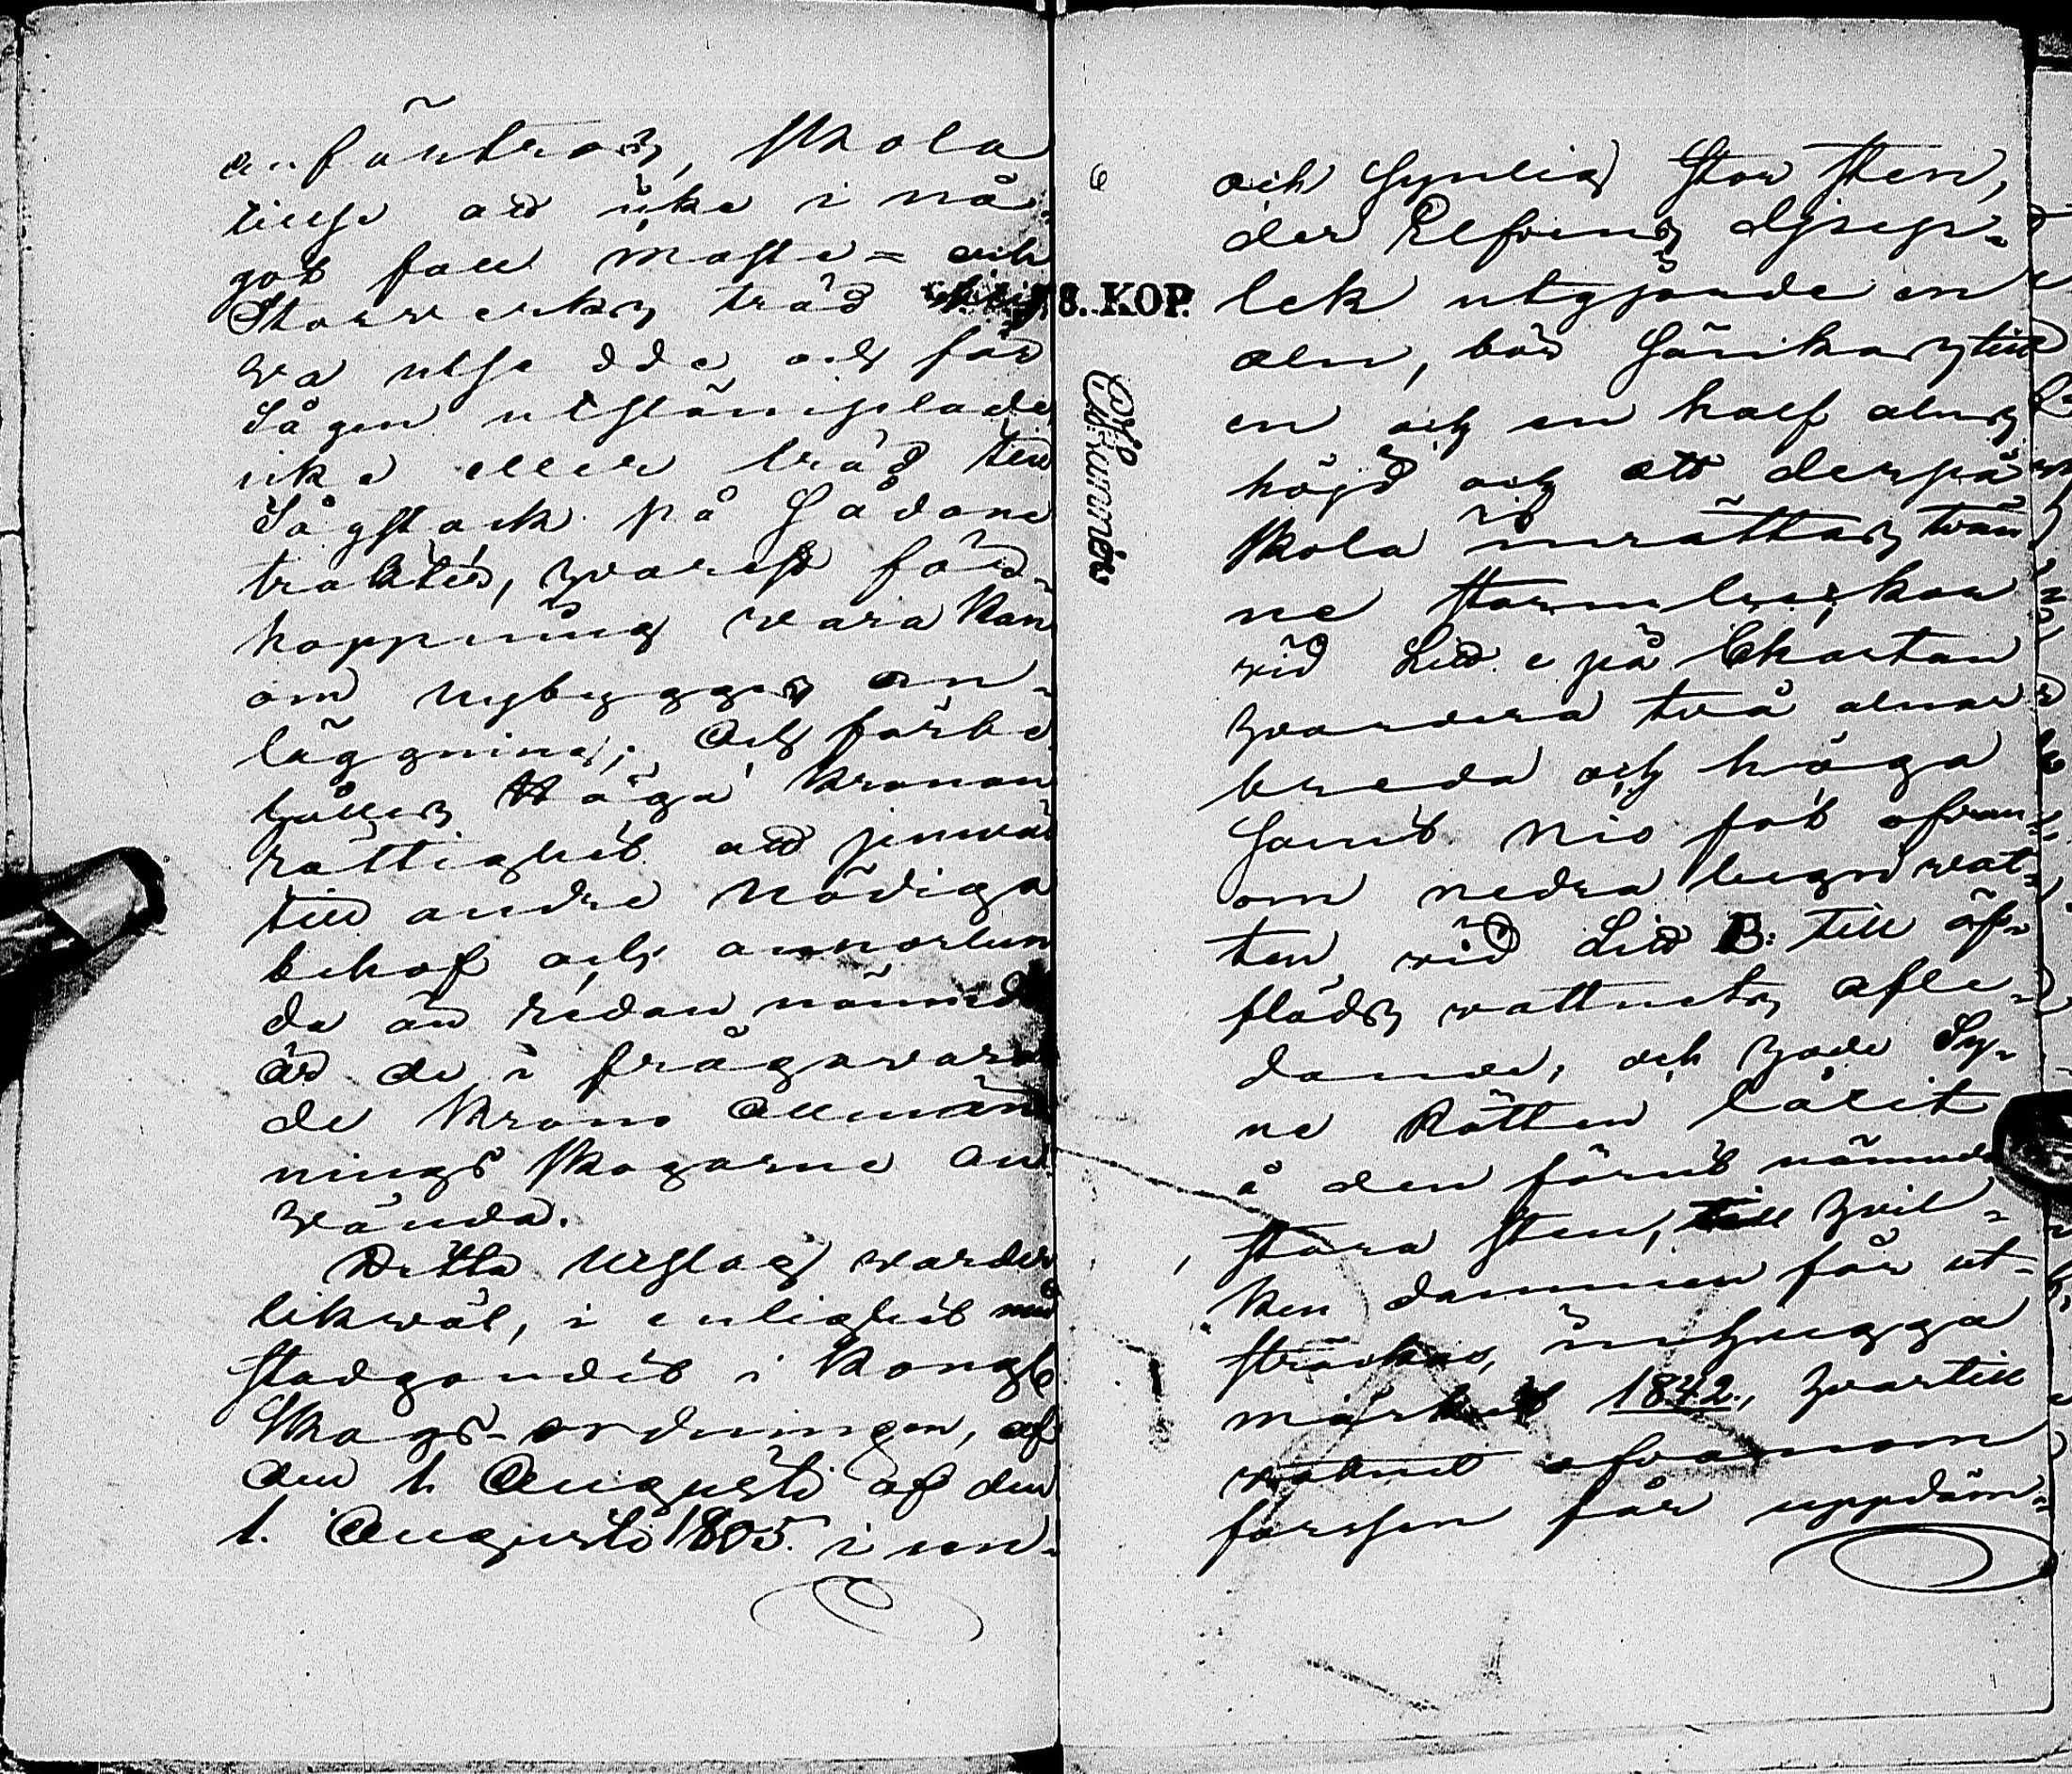 anförtros, skola
tillse att icke i nå-
got fall Maste- och
Storverks träd
va utsedde och för
Sågen utstämplade
icke eller träd till
Sågstock på Sådane
trakter, hvarest för-
hoppning vara kan
om Nybygges an-
läggning; Och förbe-
hålles Höga Kronan
rättighet att jemväl
till andre Nödiga
behof och annorlun
da än redan nämndt
är de i frågavaran
de Krono Allmän
nings skogarne an
vända.
Detta Utslag varder
likväl, i enlighet med
stadgandet i Kongl
Skogs-ordningen, af
den 1. Augusti af den
1. Augusti 1805. i un-
6
8. KOP.
och Synlig Stor Sten,
der Elfvens djup-
lek utgjorde en
aln, bör Sänkas till
en och en half alns
höjd och att derpå
skola inrättas tvän
ne Stormluckor
vid Litt. c på Chartan
hvardera två alnar
breda och höga
Samt Nio fot ofvan-
om nedra lugnvat-
ten vid Litt B. till öf-
flöds vattnets afle-
dande; och hade Sy-
ne Rätten låtit
å den förut nämnde
stora Sten, till hvil-
ken dammen får ut-
sträckas, inhugga
märket 1842., hvartill
vatnet ofvanom
forssen får uppdäm-